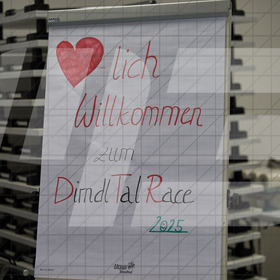 -lich
Willkommen
zum
DirndlTal Race
2025